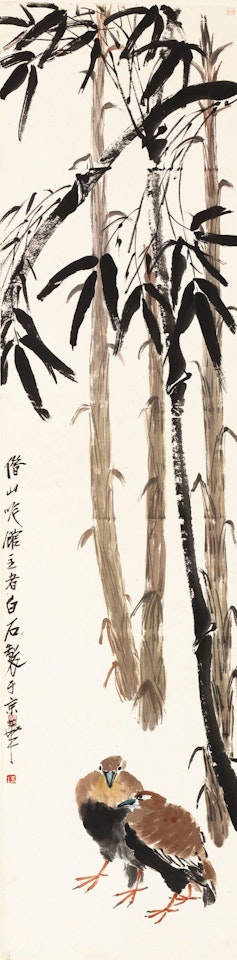 借山吟館主者白石製于京華